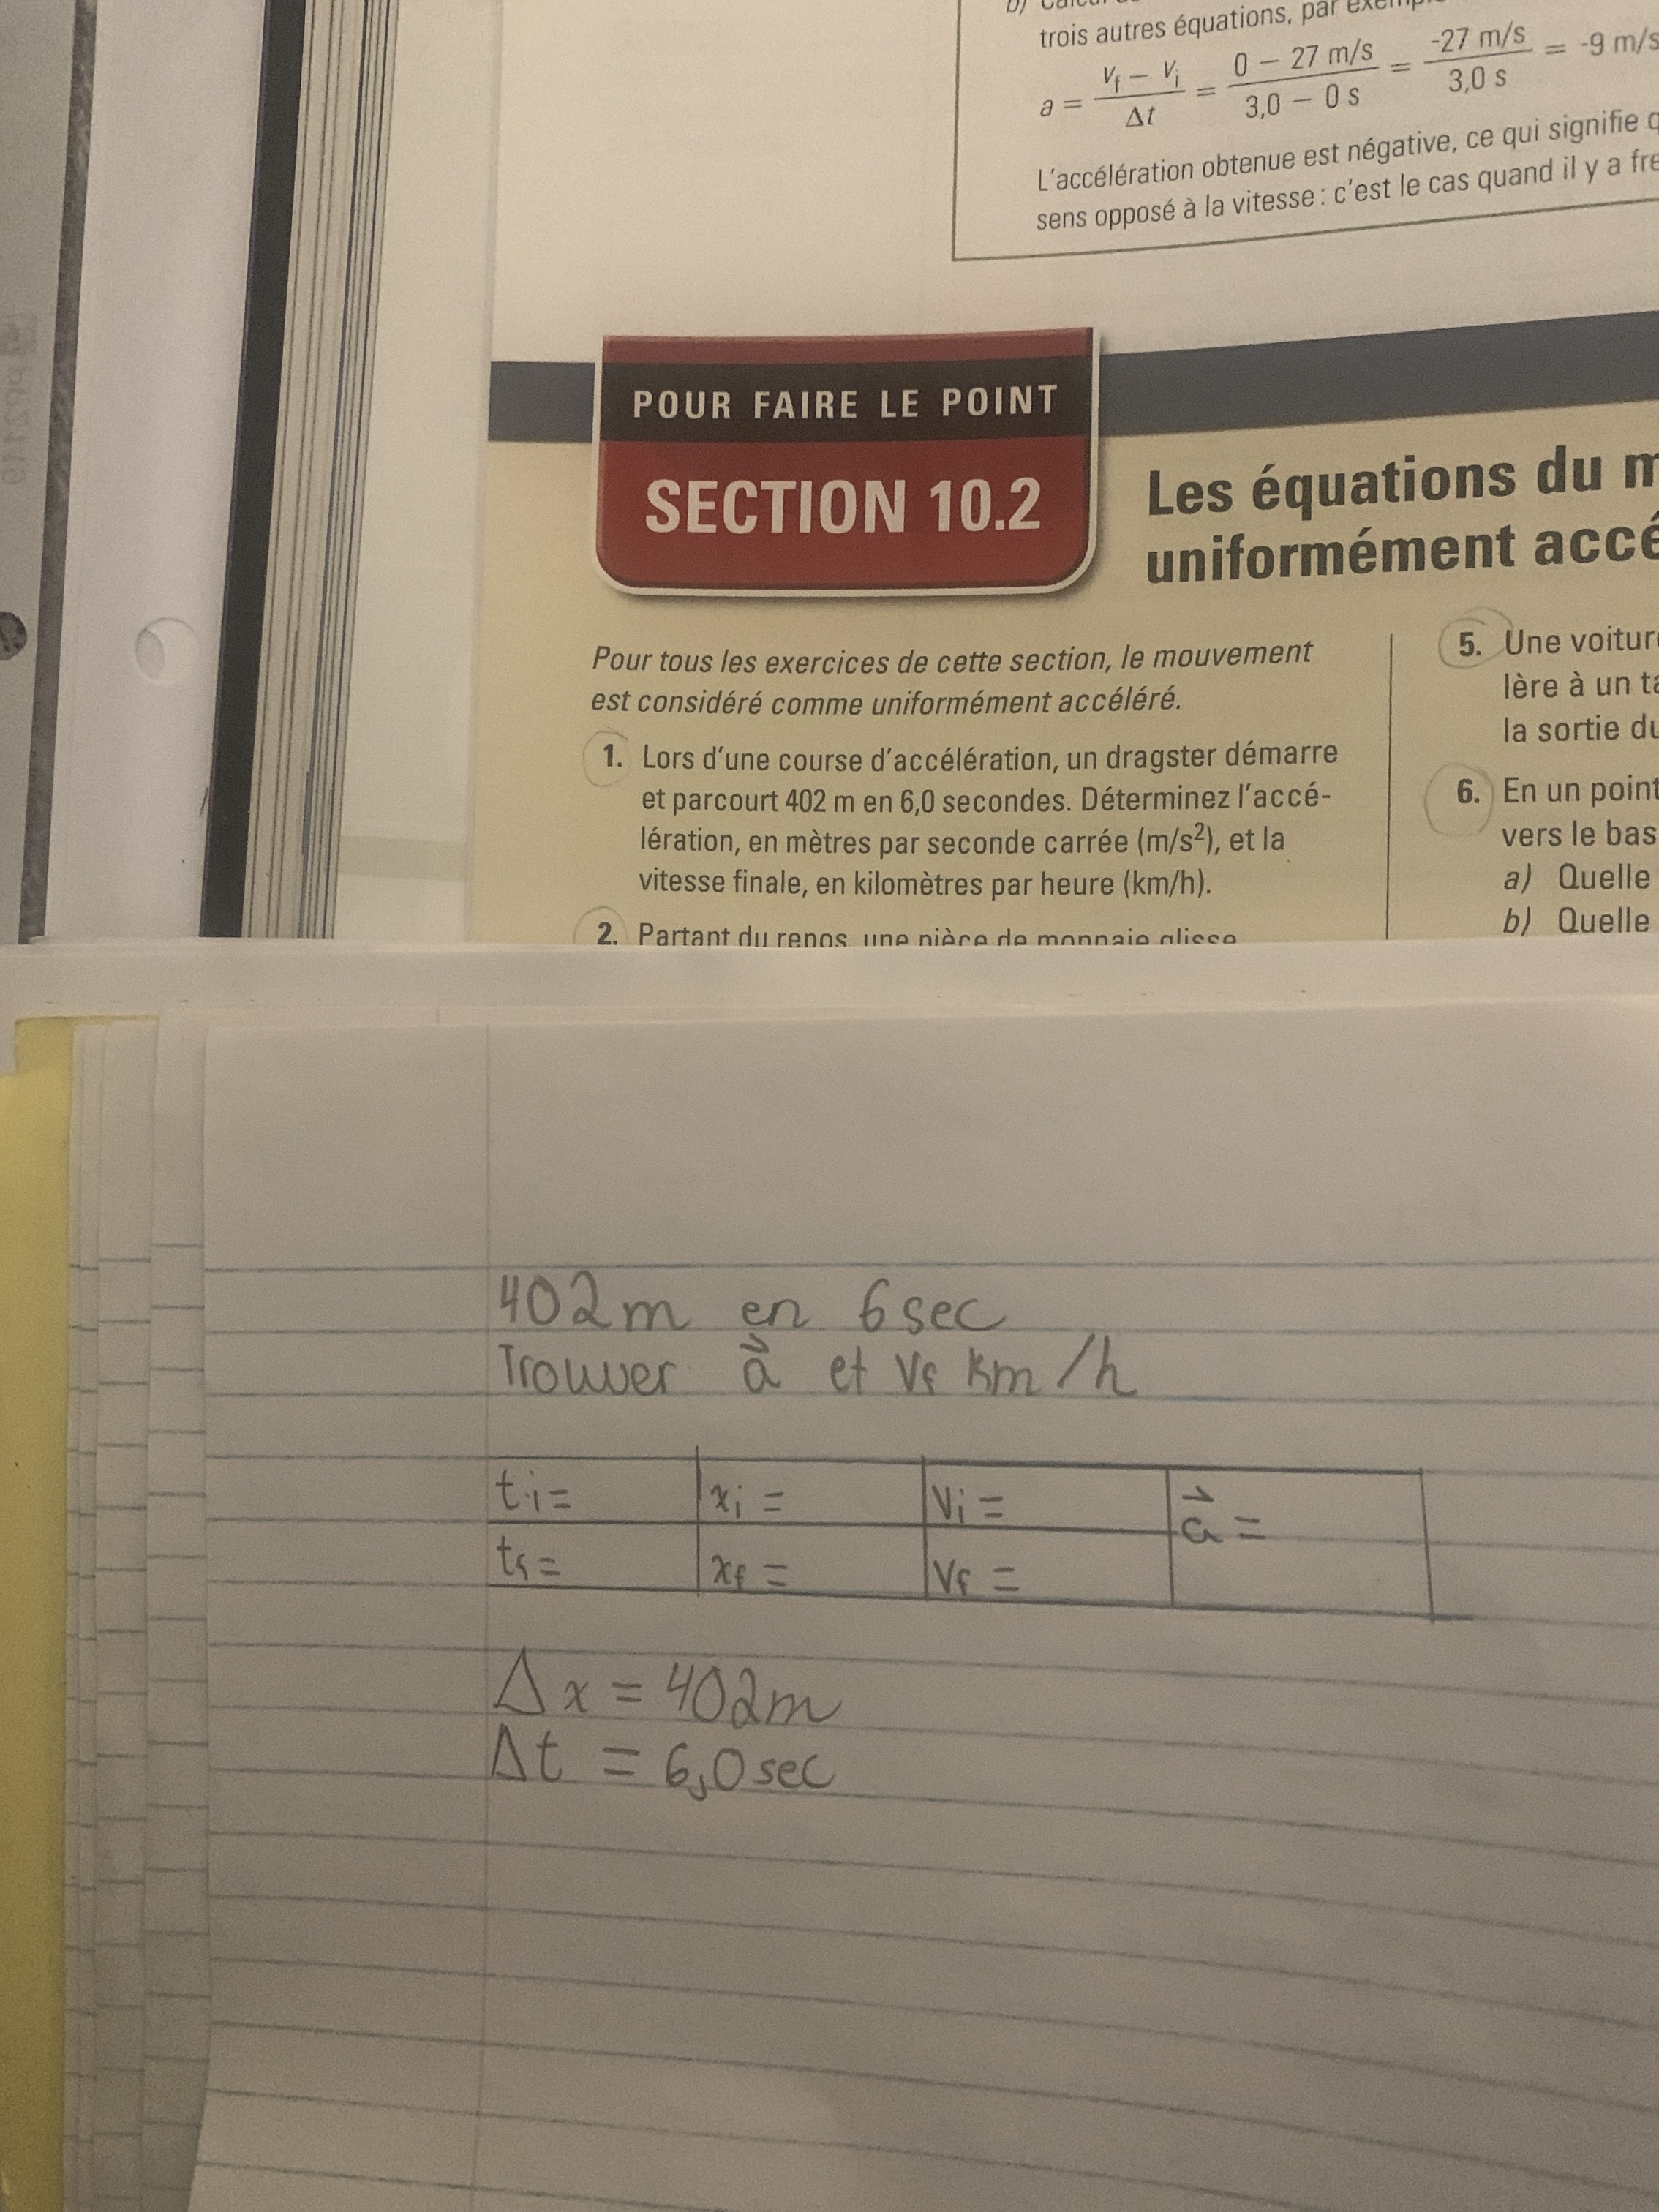 trois autres équations, par
a = (vf – vi)/Δt = (0 – 27 m/s)/(3,0 – 0 s) = (-27 m/s)/(3,0 s) = -9 m/s
L'accélération obtenue est négative, ce qui signifie
sens opposé à la vitesse : c'est le cas quand il y a
POUR FAIRE LE POINT
SECTION 10.2
Les équations du
uniformément
Pour tous les exercices de cette section, le mouvement
est considéré comme uniformément accéléré.
1. Lors d'une course d'accélération, un dragster démarre
et parcourt 402 m en 6,0 secondes. Déterminez l'accé-
lération, en mètres par seconde carrée (m/s²), et la
vitesse finale, en kilomètres par heure (km/h).
2. Partant du repos, une pièce de monnaie glisse
5. Une
lère à un
la sortie
6. En un point
vers le bas
a) Quelle
b) Quelle
402m en 6sec
Trouver a⃗ et vf km/h
ti= xi = vi = a⃗ =
tf= xf = vf =
Δx = 402m
Δt = 6,0sec